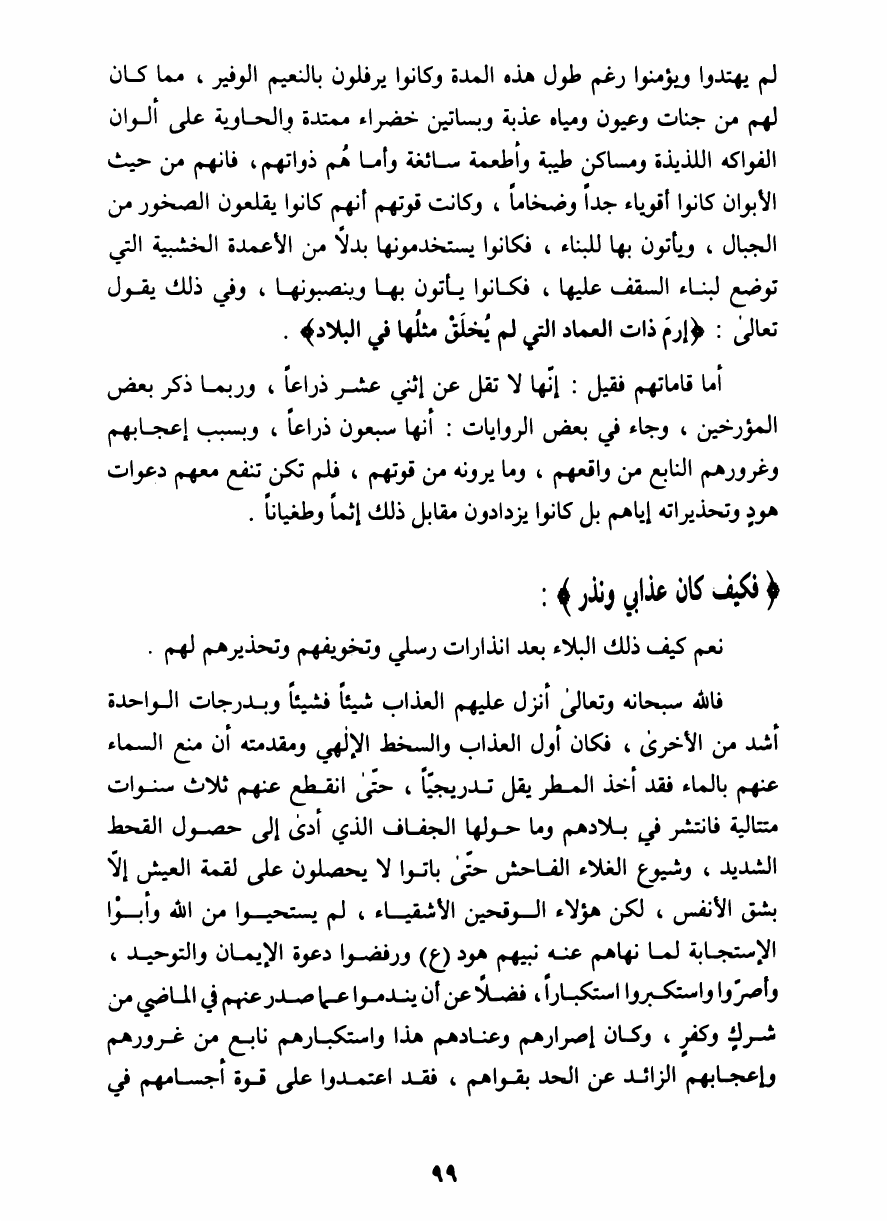 لم يهتدوا ويؤمنوا رغم طول هذه المدة وكانوا يرفلون بالنعيم الوفير ، مما كان
لهم من جنات وعيون ومياه عذبة وبساتين خضراء ممتدة والحاوية على ألوان
الفواكه اللذيذة ومساكن طيبة وأطعمة سائغة وأما هُم ذواتهم، فانهم من حيث
الأبوان كانوا أقوياء جداً وضخاماً ، وكانت قوتهم أنهم كانوا يقلعون الصخور من
الجبال ، ويأتون بها للبناء ، فكانوا يستخدمونها بدلاً من الأعمدة الخشبية التي
توضع لبناء السقف عليها ، فكانوا يأتون بها وينصبونها ، وفي ذلك يقول
تعالىٰ : ﴿إرمَ ذات العماد التي لم يُخلَقْ مثلُها في البلاد﴾ .
أما قاماتهم فقيل : إنّها لا تقل عن إثني عشر ذراعاً ، وربما ذكر بعض
المؤرخين ، وجاء في بعض الروايات : أنها سبعون ذراعاً ، وبسبب إعجابهم
وغرورهم النابع من واقعهم ، وما يرونه من قوتهم ، فلم تكن تنفع معهم دعوات
هودٍ وتحذيراته إياهم بل كانوا يزدادون مقابل ذلك إثماً وطغياناً .
﴿ فكيف كان عذابي ونذر ﴾ :
نعم كيف ذلك البلاء بعد انذارات رسلي وتخويفهم وتحذيرهم لهم .
فالله سبحانه وتعالىٰ أنزل عليهم العذاب شيئاً فشيئاً وبدرجات الواحدة
أشد من الأخرىٰ ، فكان أول العذاب والسخط الإلٰهي ومقدمته أن منع السماء
عنهم بالماء فقد أخذ المطر يقل تدريجيّاً ، حتّىٰ انقطع عنهم ثلاث سنوات
متتالية فانتشر في بلادهم وما حولها الجفاف الذي أدىٰ إلى حصول القحط
الشديد ، وشيوع الغلاء الفاحش حتّىٰ باتوا لا يحصلون على لقمة العيش إلّا
بشق الأنفس ، لكن هؤلاء الوقحين الأشقياء ، لم يستحيوا من الله وأبوْا
الإستجابة لما نهاهم عنه نبيهم هود (ع) ورفضوا دعوة الإيمان والتوحيد ،
وأصرّوا واستكبروا استكباراً، فضلاً عن أن يندموا عما صدر عنهم في الماضي من
شركٍ وكفرٍ ، وكان إصرارهم وعنادهم هذا واستكبارهم نابع من غرورهم
وإعجابهم الزائد عن الحد بقواهم ، فقد اعتمدوا على قوة أجسامهم في
٩٩